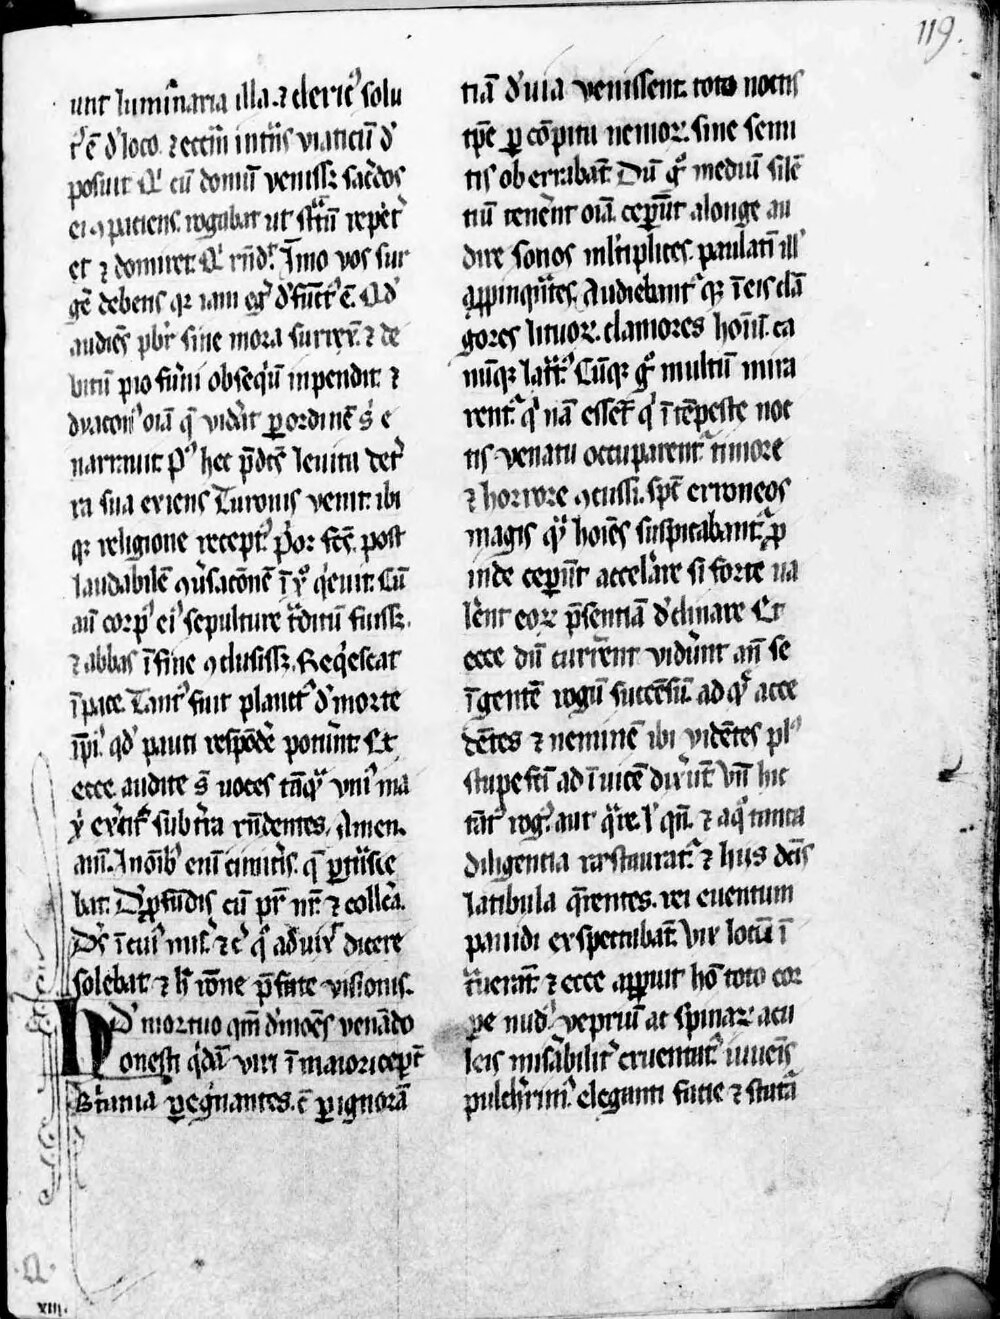 119.
unt luminaria illa. ⁊ cleric᷒ solu
t᷒ ē d̄ loco. ⁊ eccłm int̄ns viaticū d̄
posuit. Q̇ cū domū veniss; sac̄dos
ei ꝯpatiens. rogabat ut st̄tū repet̄
et ⁊ dormiret. Q̇ rn̄d᷒. Imo vos sur
gē debetis qr iam eg᷒ d̄fūct᷒ ē. Q̇d
audiēs pbr̄ sine mora surrex̄. ⁊ de
bitū pio fun̄i obseq̇ū inpendit. ⁊
dyacon᷒ oīa q̄ vid̄at ꝑ ordinē s᷒ e
narrauit. P᷒ hec p̄dc̄s leuita
ra sua exiens Turonis venit. ibi
qr religione recept᷒. p̄or fcs̄. post
laudabilē ꝯūsacōnē ī x᷒ q̇euit. Cū
aū corp᷒ ei᷒ sepulture t̄ditū fuiss;.
⁊ abbas ī fine ꝯclusiss;. Req̇escat
ī pace. Tant᷒ fuit planct᷒ d̄ morte
ip̄i᷒. qd̄ pauci respōdē potūnt. Et
ecce audite s̄ uoces tāq̄ uni᷒ ma
x̄ ex̄cit᷒ sub t̄ra rn̄dentes. Amen.
am̄. In oīb᷒ enī cimit̄is. q̄ ꝑt̄nsie
bat. D̄ ꝓfūdis cū pr̄ nr̄. ⁊ collc̄a.
Ds̄ ī cui᷒ mis̄. ⁊ c̄ q̄ adui᷒ dicere
solebat ⁊ h̄ rōne p̄fate visionis.
D̄ mortuo qm̄ d̄mōes venādo
Honesti q̇dā viri ī maiori cep̄t
Bt̄tania ꝑeg̓nantes. c̄ ꝑ ignorā
tiā d̄uia venissent. toto noctis
tp̄e ꝑ cōpita nemoꝝ. sine semi
tis oberrabāt. Dū g̊ mediū silē
tiū ten̄ent oīa. ceꝑūt a longe au
dire sonos mltiplices. paulatī ill᷒
aꝓpinq̄ntes. Audiebant᷒ qꝫ ī eis clā
gores lituoꝝ. clamores hom̄. ca
nūqꝫ latr̄t᷒. Cūqꝫ g̊ multū mira
rent᷒ q̇ nā essēt q̇ ī tēpeste noc
tis venatu occuparent᷒. timore
⁊ horrore ꝯcussi. spc̄ erroneos
magis q̄ hoīes suspicabant᷒. ꝓ
inde ceꝑūt accel̄are si forte ua
l̄ent eoꝝ p̄sentiā d̄clinare. Et
ecce dū curr̄ent vid̄unt an̄ se
īgentē rogū succēsū. ad q̄ acce
dētes ⁊ neminē ibi vidētes pl᷒
stupefc̄i ad īuicē dix̄ūt. Vn̄ hic
tāt᷒ rog᷒. aut q̄re. l᷒ qn̄. ⁊ a q̊ tanta
diligentia restaurat᷒. ⁊ hiis dc̄is
latibula q̄rentes. rei euentum
pauidi exspectabāt. Vix locū ī
t̄uerāt. ⁊ ecce aꝑꝑuit hō toto cor
pe nud᷒. vepriū ac spinaꝝ acu
leis mis̄abilit᷒ cruentat᷒. iuuēis
pulch̄rim᷒. eleganti facie ⁊ statā
XIII.